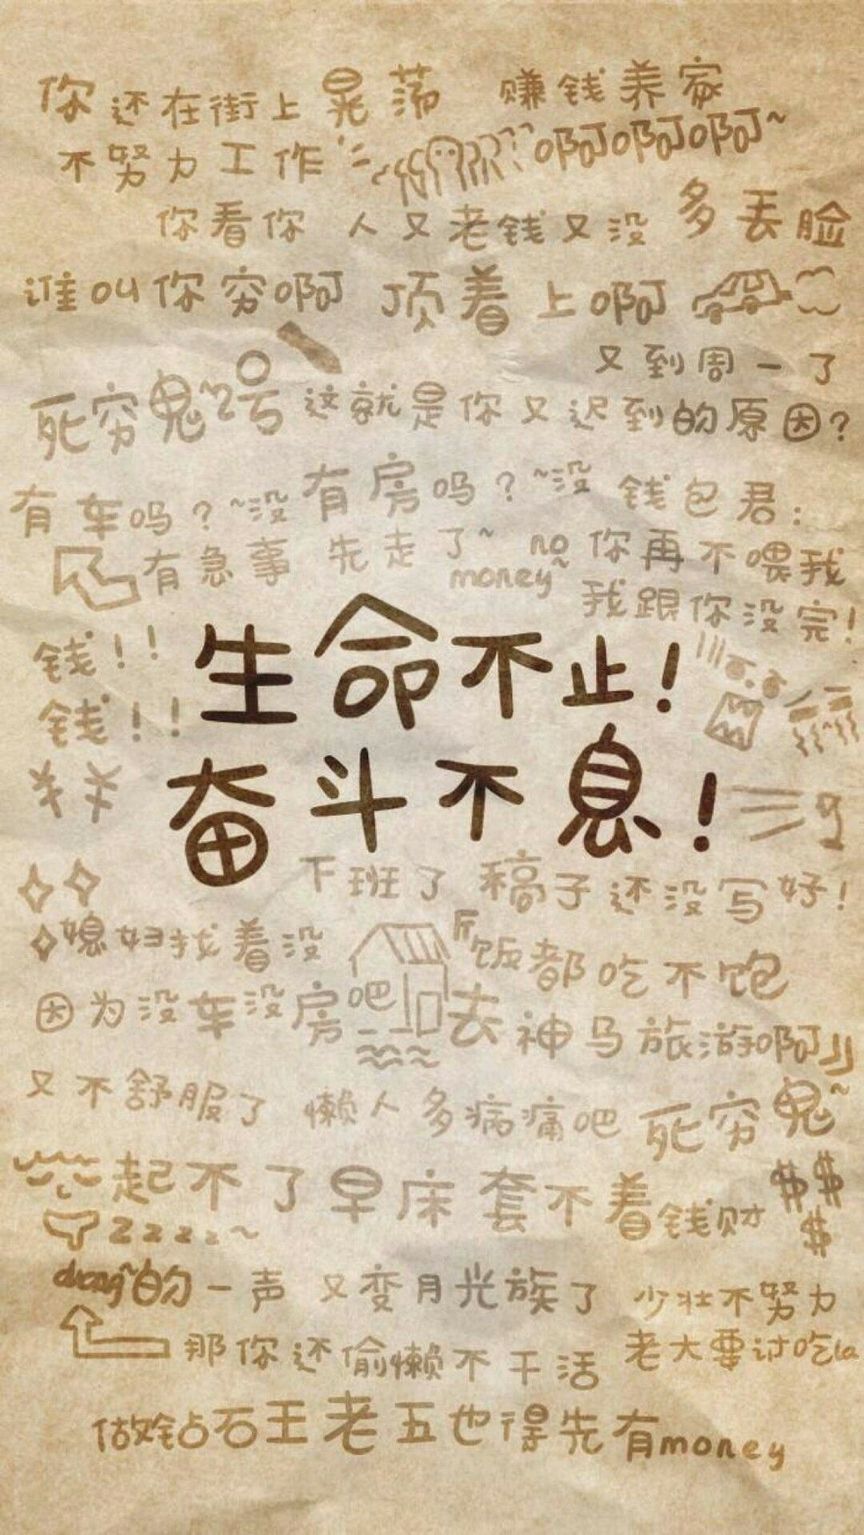 你还在街上晃荡 赚钱养家
不努力工作 啊啊啊~
你看你 人又老钱又没 多丢脸
谁叫你穷啊 顶着上啊
又到周一了
死穷鬼~2号 这就是你又迟到的原因?
有车吗?~没有房吗?~没 钱包君:
有急事 先走了~ no money~ 你再不喂我
我跟你没完!
钱!!
生命不止!
钱!!
奋斗不息!
下班了 稿子还没写好!
媳妇找着没 饭都吃不饱
因为没车没房吧 去神马旅游啊
又不舒服了 懒人多病痛吧 死穷鬼~
起不了早床 套不着钱财 $$$
zzzzz~
的一声 又变月光族了 少壮不努力
那你还偷懒不干活 老大要讨吃la
做钻石王老五也得先有money